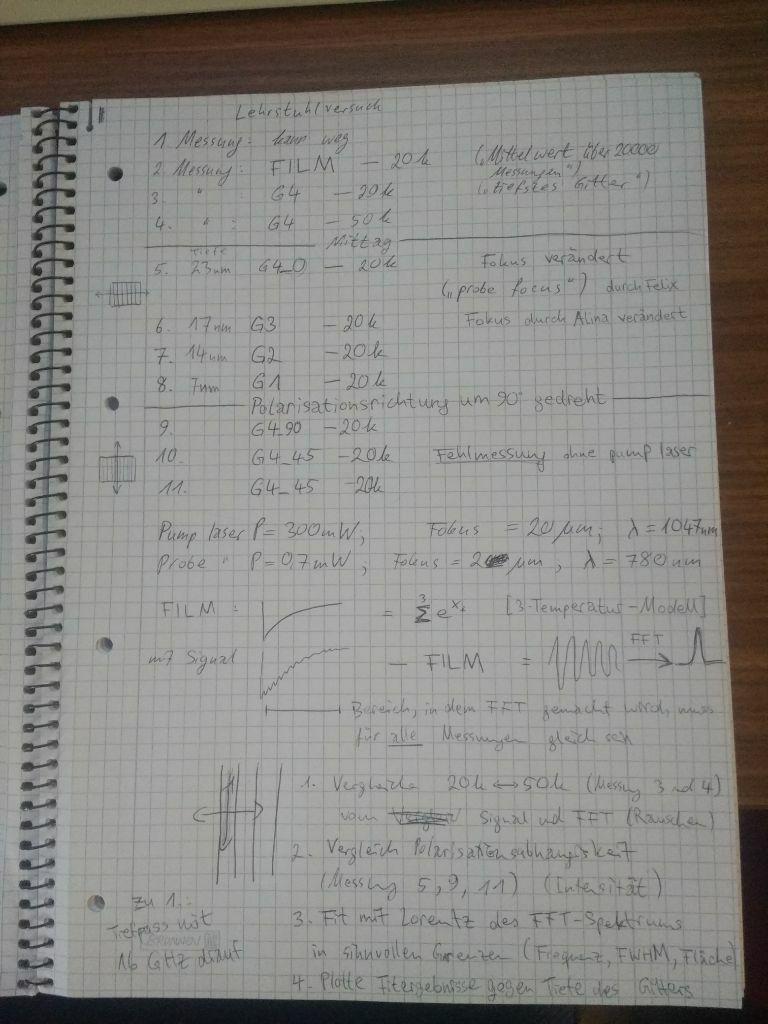 Lehrstuhlversuch
1. Messung: kann weg
2. Messung: FILM – 20k („Mittelwert über 20000 Messungen“)
3. " G4 – 20k („tiefstes Gitter“)
4. " : G4 – 50k
Mittag
Tiefe
5. 23nm G4_0 – 20k Fokus verändert
(„probe focus“) durch Felix
6. 17nm G3 – 20k Fokus durch Alina verändert
7. 14nm G2 – 20k
8. 7nm G1 – 20k
Polarisationsrichtung um 90° gedreht
9. G4_90 – 20k
10. G4_45 – 20k Fehlmessung ohne pump laser
11. G4_45 – 20k
Pump laser P = 300mW; Fokus = 20 µm; λ = 1047nm
Probe " P = 0,7mW; Fokus = 2 µm, λ = 780nm
FILM: = [3-Temperatur-Modell]
Signal – FILM = FFT
Bereich, in dem FFT gemacht wird, muss
für alle Messungen gleich sein
1. Vergleiche 20k ↔ 50k (Messung 3 und 4)
vom Signal und FFT (Rauschen)
2. Vergleich Polarisationsabhängigkeit
(Messung 5, 9, 11) (Intensität)
3. Fit mit Lorentz des FFT-Spektrums
in sinnvollen Grenzen (Frequenz, FWHM, Fläche)
4. Plotte Fitergebnisse gegen Tiefe des Gitters
zu 1.:
Tiefpass mit
16 GHz drauf